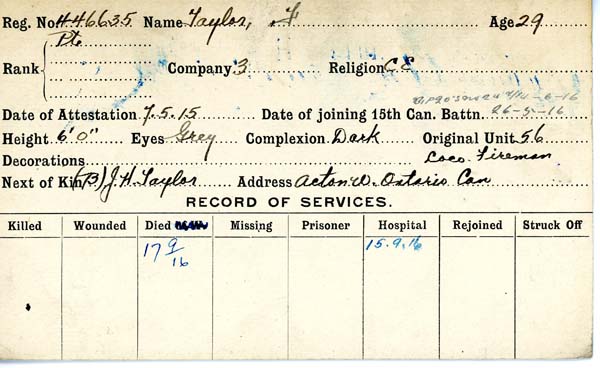 Reg. No. 446635 Name Taylor, F Age 29
Rank Pte Company 3 Religion C E
Date of Attestation 7.5.15 Date of joining 15th Can. Battn. 26-5-16
Height 6'0" Eyes Grey Complexion Dark Original Unit 56
Decorations Loco. Fireman
Next of Kin (B) J.H. Taylor Address Acton W. Ontario Can
RECORD OF SERVICES.
Killed Wounded Died Missing Prisoner Hospital Rejoined Struck Off
17 9/16 15.9.16